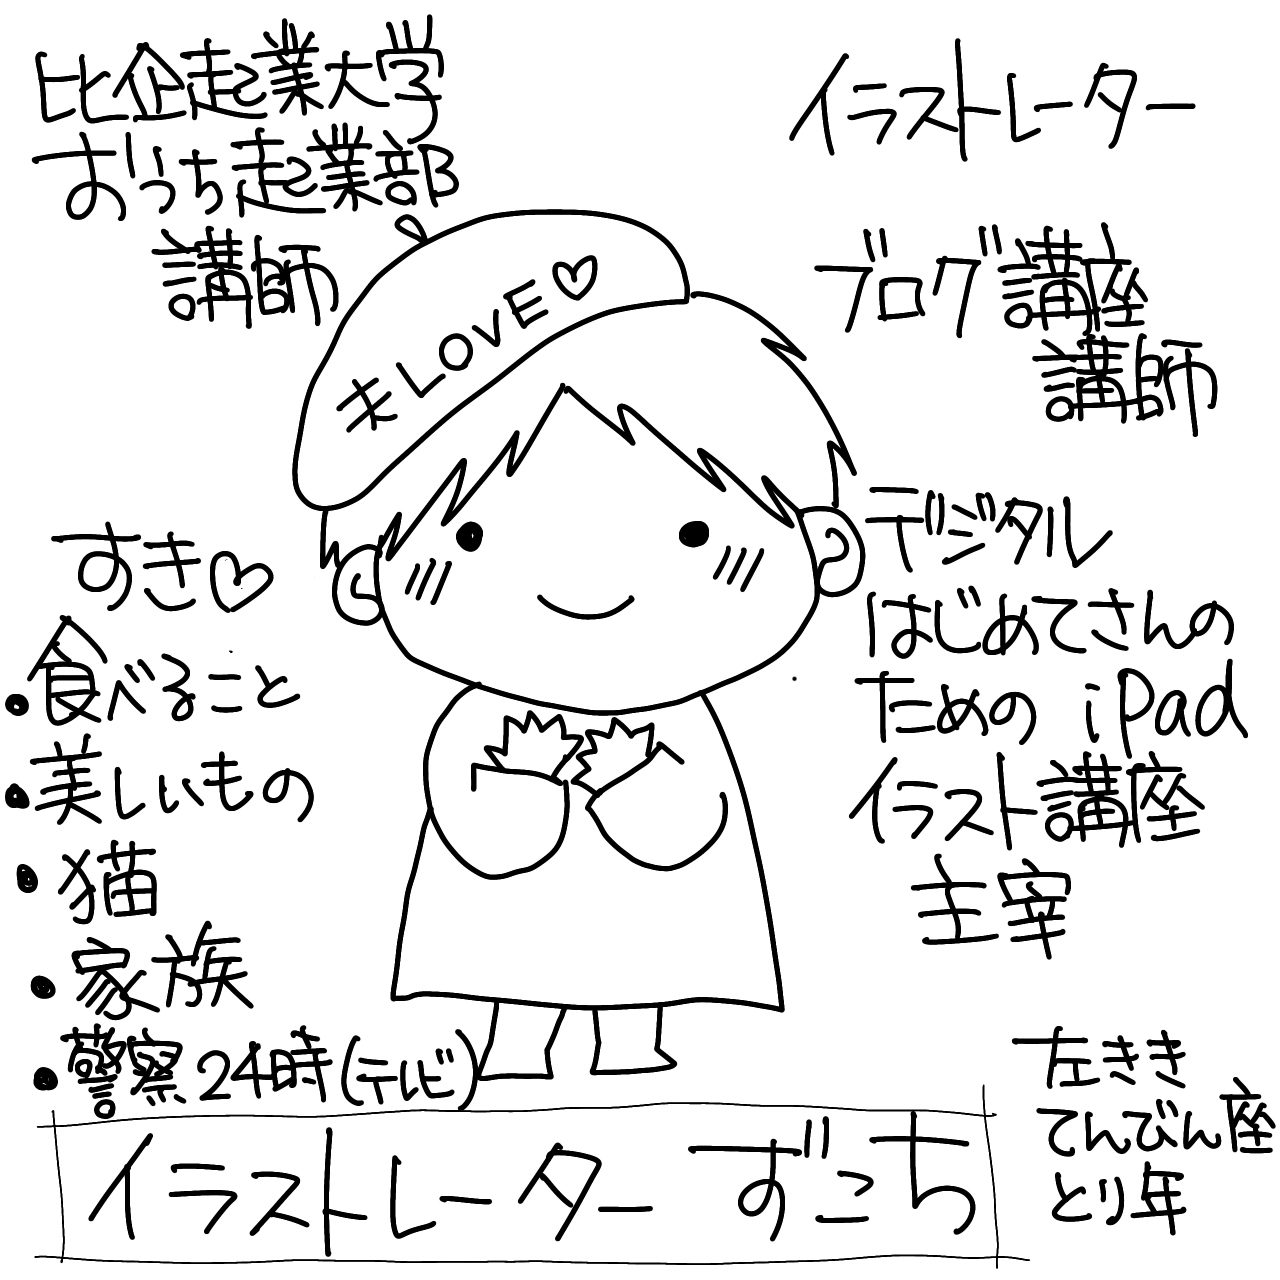 比企起業大学
おうち起業部
講師
イラストレーター
ブログ講座
講師
LOVE♡
デジタル
はじめてさんの
ための iPad
イラスト講座
主宰
すき♡
・食べること
・美しいもの
・猫
・家族
・警察24時(テレビ)
左きき
てんびん座
とり年
イラストレーター ずこち